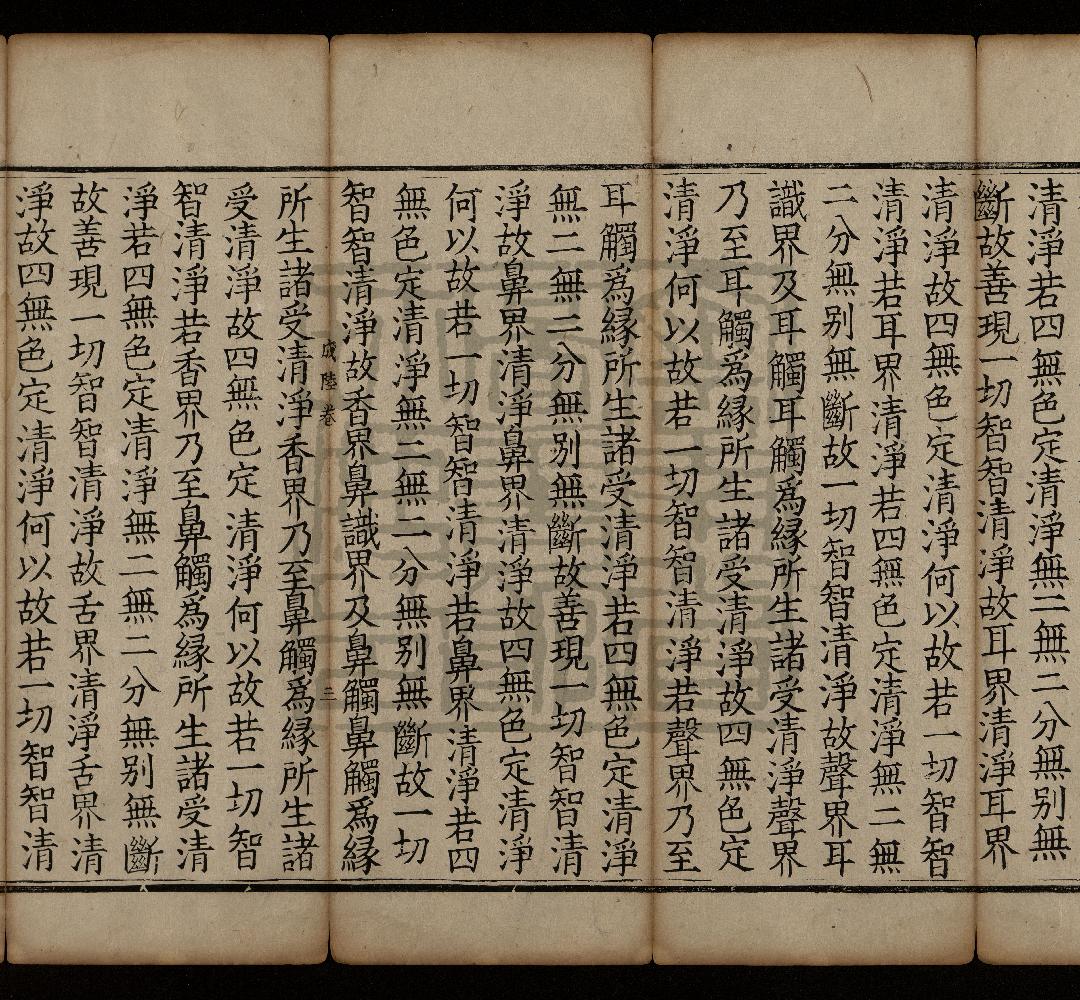 清淨若四無色定清淨無二無二分無別無
斷故善現一切智智清淨故耳界清淨耳界
清淨故四無色定清淨何以故若一切智智
清淨若耳界清淨若四無色定清淨無二無
二分無別無斷故一切智智清淨故聲界耳
識界及耳觸耳觸爲緣所生諸受清淨聲界
乃至耳觸爲緣所生諸受清淨故四無色定
清淨何以故若一切智智清淨若聲界乃至
耳觸爲緣所生諸受清淨若四無色定清淨
無二無二分無別無斷故善現一切智智清
淨故鼻界清淨鼻界清淨故四無色定清淨
何以故若一切智智清淨若鼻界清淨若四
無色定清淨無二無二分無別無斷故一切
智智清淨故香界鼻識界及鼻觸鼻觸爲緣
陸卷 三
所生諸受清淨香界乃至鼻觸爲緣所生諸
受清淨故四無色定清淨何以故若一切智
智清淨若香界乃至鼻觸爲緣所生諸受清
淨若四無色定清淨無二無二分無別無斷
故善現一切智智清淨故舌界清淨舌界清
淨故四無色定清淨何以故若一切智智清